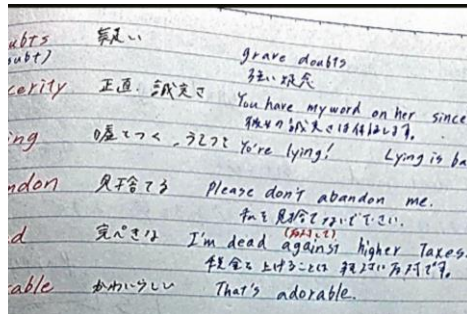 ubts 疑い grave doubts
oubt) 強い疑念
cerity 正直、誠実さ You have my word on her since
彼女の誠実さは保証します。
ing 嘘をつく、うそつき You're lying! Lying is ba
ndon 見捨てる Please don't abandon me.
私を見捨てないで下さい。
d 完ぺきな I'm dead against higher taxes.
税金を上げることは 絶対に反対です。
able かわいらしい That's adorable.